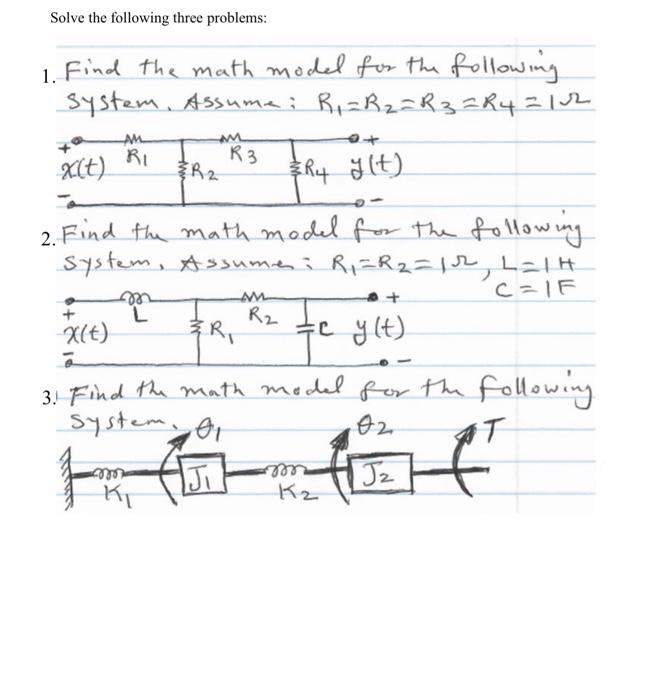 Solve the following three problems:
1. Find the math model for the following
system. Assume: R₁=R₂=R₃=R₄=1Ω
+ R1 R3 +
x(t) R2 R4 y(t)
- -
2. Find the math model for the following
system. Assume: R₁=R₂=1Ω, L=1H
C=1F
+ L R2 +
x(t) R1 C y(t)
- -
3. Find the math model for the following
system.
θ1 θ2 T
J1 J2
K1 K2